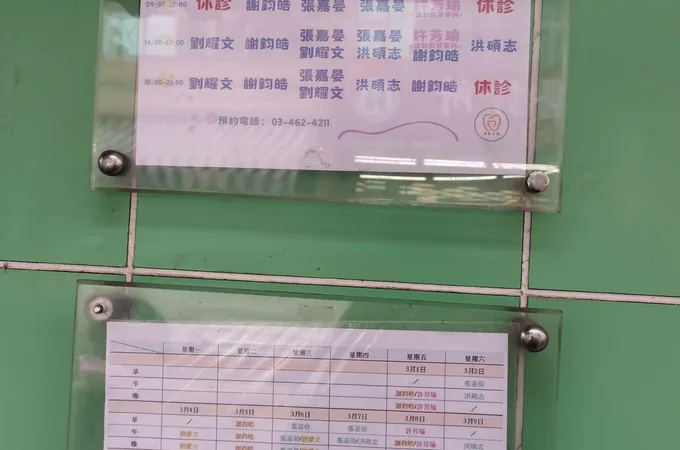 09:30-12:00 休診 謝鈞皓 張嘉晏 張嘉晏 許芳瑜 休診
14:00-17:00 劉耀文 謝鈞皓 張嘉晏 劉耀文 張嘉晏 洪碩志 許芳瑜 謝鈞皓 洪碩志
18:00-21:00 劉耀文 謝鈞皓 張嘉晏 劉耀文 洪碩志 謝鈞皓 休診
預約電話: 03-462-4211
星期一 星期二 星期三 星期四 星期五 星期六
3月1日 3月2日
早 / 張嘉晏
午 謝鈞皓/許芳瑜 洪碩志
晚 謝鈞皓/許芳瑜 /
3月4日 3月5日 3月6日 3月7日 3月8日 3月9日
早 / 謝鈞皓 張嘉晏 張嘉晏 許芳瑜 /
午 劉耀文 謝鈞皓 張嘉晏/劉耀文 張嘉晏/洪碩志 謝鈞皓/許芳瑜 洪碩志